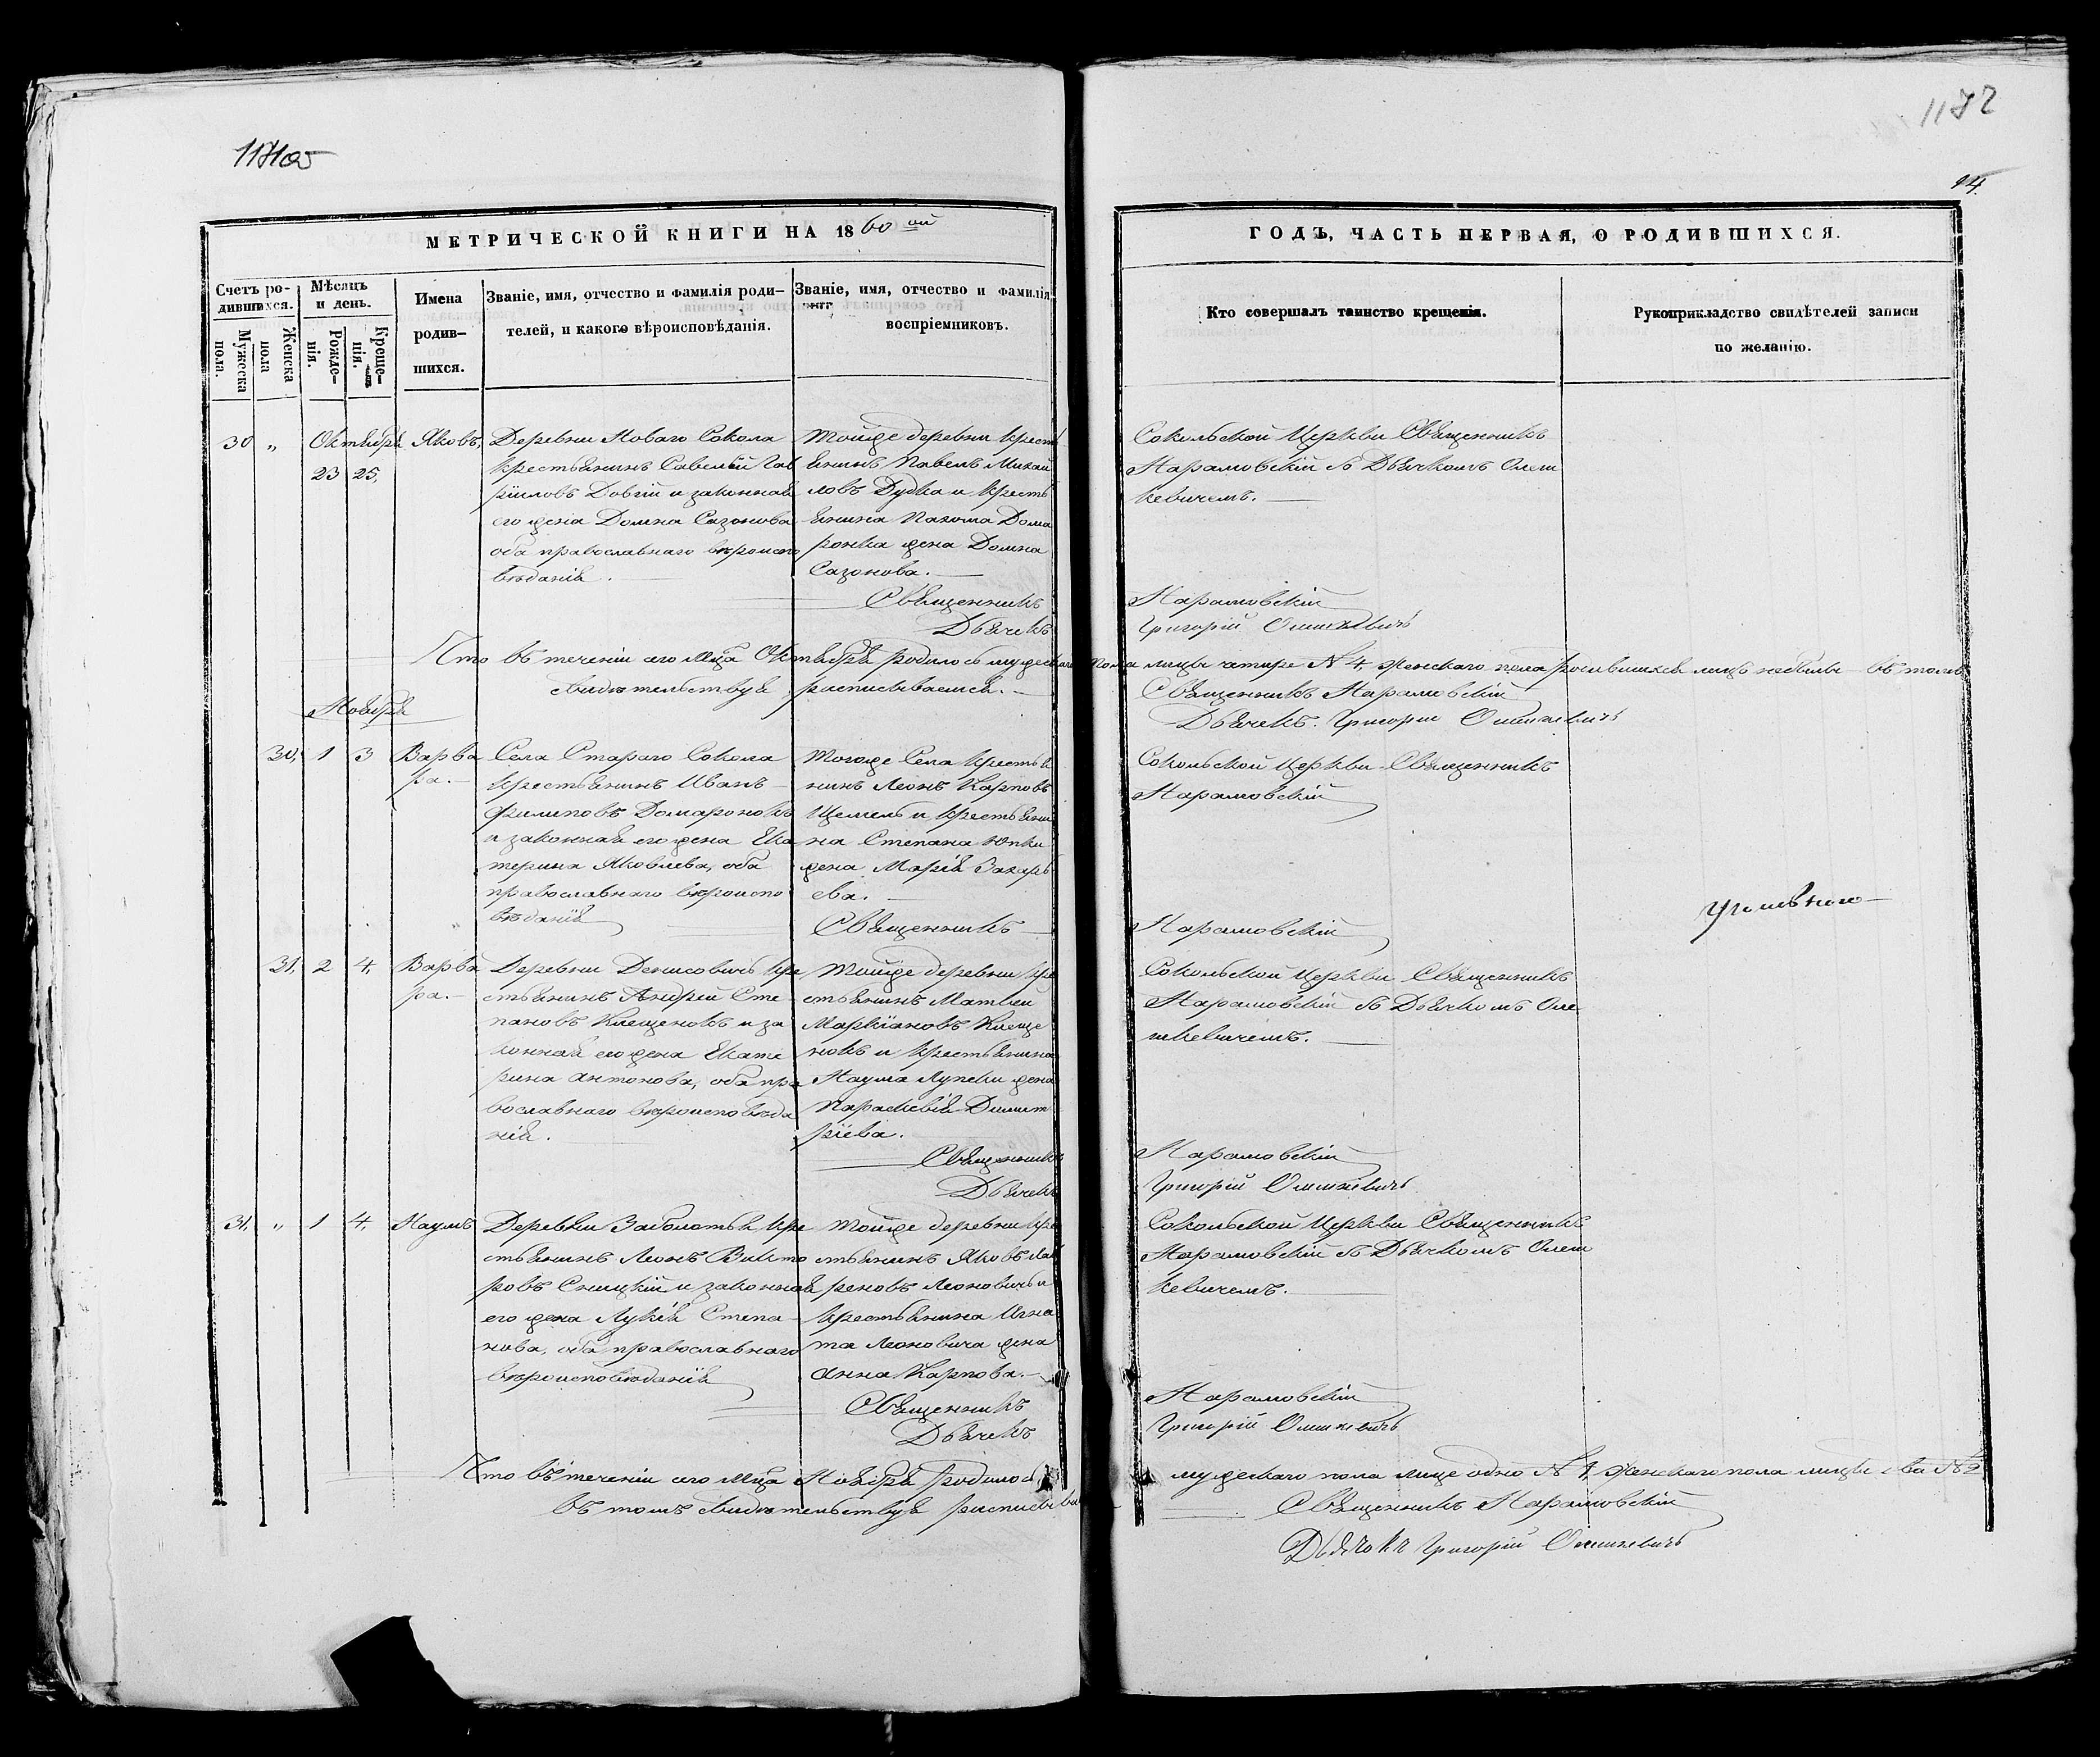 1172
14.
МЕТРИЧЕСКОЙ КНИГИ НА 1860 ой
ГОДЪ, ЧАСТЬ ПЕРВАЯ, О РОДИВШИХСЯ.
Счетъ ро-
дившихся.
Мужеска
пола.
Женска
пола
Мѣсяцъ
и день.
Рожде-
нія.
Креще-
нія.
Имена
родив-
шихся.
Званіе, имя, отчество и фамилія роди-
телей, и какого вѣроисповѣданія.
Званіе, имя, отчество и фамилія
воспріемниковъ.
Кто совершалъ таинство крещенія.
Рукоприкладство свидѣтелей записи
по желанію.
30 „ Октября 23 25. Яковъ,
Деревни Новаго Сокола
крестьянинъ Савелій Гав
рііловъ Довгій и законная
его жена Домна Сазонова
оба православнаго вѣроиспо
вѣданія.
Тойже деревни крест
янинъ Павелъ Михай
ловъ Дудка и крестъ
янина Пахома Дома
ронка жена Домна
Сазонова.
Священникъ
Дьячекъ
Сокольской Церкви Священникъ
Нарановскій съ Дьячкомъ Олеш
кевичемъ.
Нарановскій
Григорій Олешкевичъ
Что въ теченіи сего Мца Октября родилось мужескаго пола лицы четыре N 4. женскаго пола родившихся лицъ небыло въ томъ
свидѣтельствуя росписываемся.
Священникъ Нарановскій
Дьячекъ Григорій Олешкевичъ
Ноября
30, 1 3 Варва
ра.
Села Стараго Сокола
крестьянинъ Иванъ
Филиповъ Домаронокъ
и законная его жена Ека
терина Яковлева, оба
православнаго вѣроиспо
вѣданія
Тогоже Села крестья
нинъ Леонъ Карповъ
Щемель и крестьяни
на Степана Юнки
жена Марія Захарь
ева.
Священникъ
Сокольской Церкви Священникъ
Нарановскій
Нарановскій
31. 2 4. Варва
ра.
Деревни Денисовичъ кре
стьянинъ Андрей Сте
пановъ Клещенокъ и за
конная его жена Екате
рина Антонова, оба пра
вославнаго вѣроисповѣда
нія.
Тойже деревни кре
стьянинъ Матвей
Маркіановъ Клеще
нокъ и крестьянина
Наума Лупеки жена
Параскевія Димит
ріева.
Священникъ
Дьячекъ
Сокольской Церкви Священникъ
Нарановскій съ Дьячкомъ Оле
шкевичемъ.
Нарановскій
Григорій Олешкевичъ
31. „ 1 4. Наумъ
Деревни Заболотья кре
стьянинъ Леонъ Викто
ровъ Сницкій и законная
его жена Лукія Степа
нова, оба православнаго
вѣроисповѣданія
Тойже деревни кре
стьянинъ Яковъ Лав
реновъ Леоновичъ и
крестьянина Игна
та Леоновича жена
Анна Карпова.
Священникъ
Дьячекъ
Сокольской Церкви Священникъ
Нарановскій съ Дьячкомъ Олеш
кевичемъ.
Нарановскій
Григорій Олешкевичъ
Что въ теченіи сего Мца Ноября родилось мужескаго пола лице одно N 1, женскаго пола лицы два N 2
въ томъ свидѣтельствуя росписыва
Священникъ Нарановскій
Дьячокъ Григорій Олешкевичъ